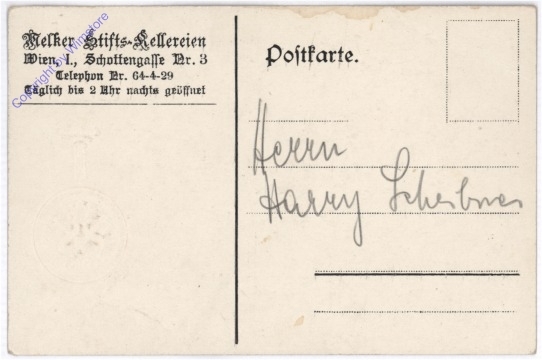 Melker Stifts-Kellereien
Wien, I., Schottengasse Nr. 3
Telephon Nr. 64-4-29
Täglich bis 2 Uhr nachts geöffnet
Copyright by Wimstore
Postkarte.
Herrn
Harry Scheibner